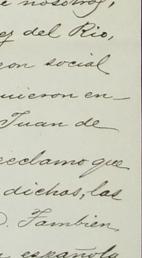 e nosotros,
ez del Rio,
con social
quieron en-
Juan de
reclamo que
dichos, las
). Tambien
a española